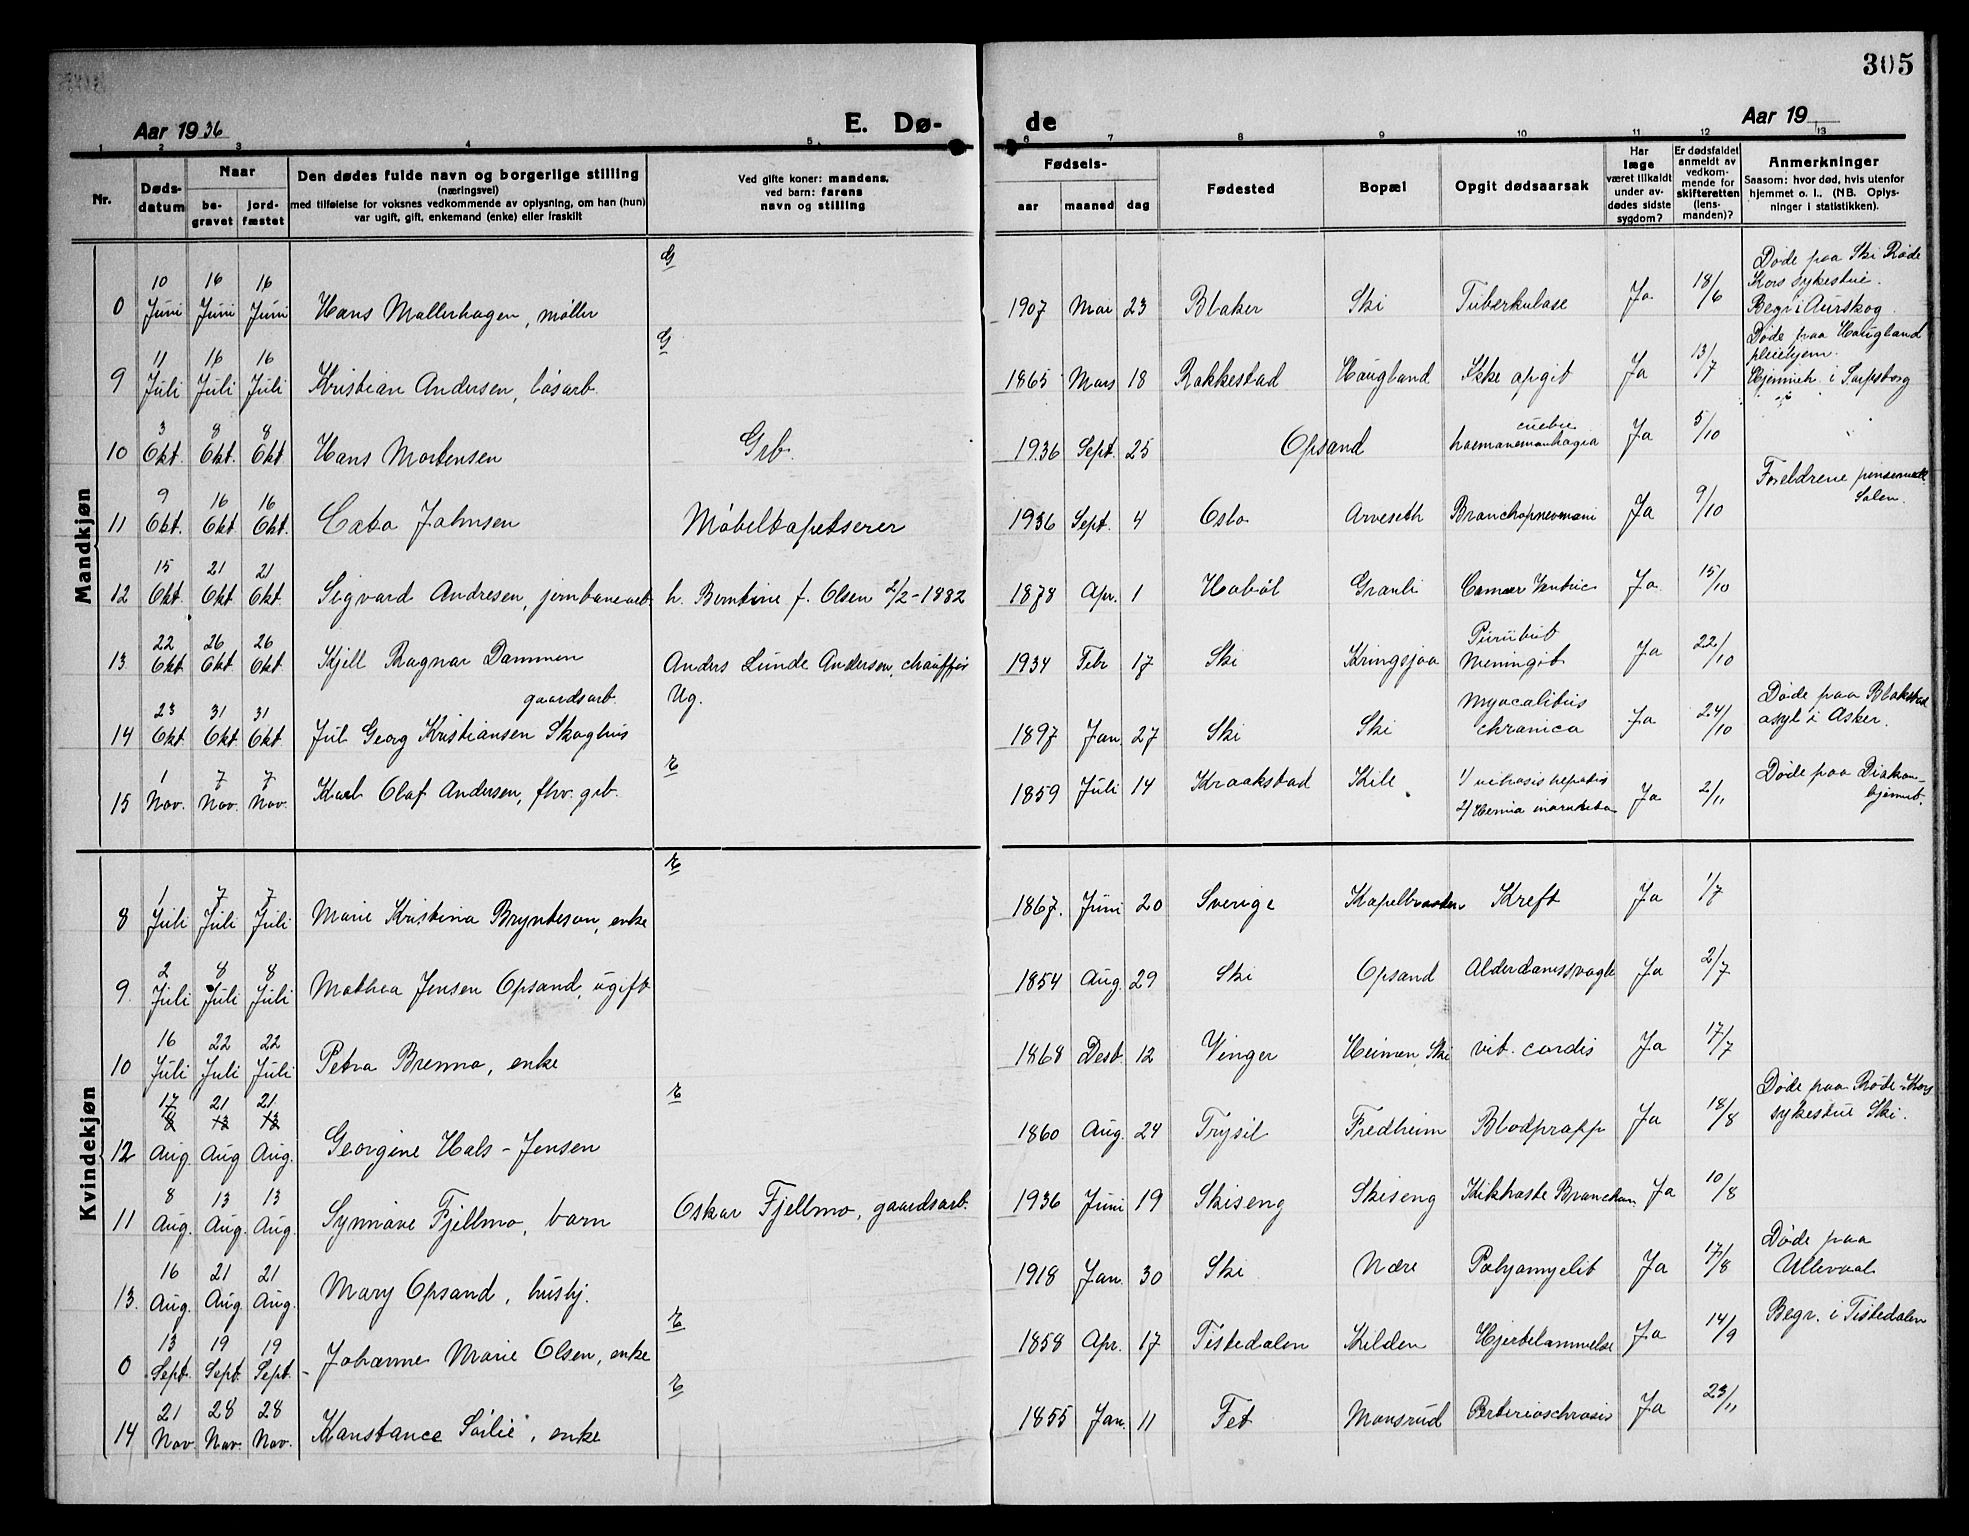 305
Aar 1936 E. Dø- de Aar 19
1 2 3 4 5 6 7 8 9 10 11 12 13
Nr.
Døds-
datum
Naar
be-
gravet
jord-
fæstet
Den dødes fulde navn og borgerlige stilling
(næringsvei)
med tilføielse for voksnes vedkommende av oplysning, om han (hun)
var ugift, gift, enkemand (enke) eller fraskilt
Ved gifte koner: mandens,
ved barn: farens
navn og stilling
Fødsels-
aar maaned dag
Fødested
Bopæl
Opgit dødsaarsak
Har
læge
været tilkaldt
under av-
dødes sidste
sygdom?
Er dødsfaldet
anmeldt av
vedkom-
mende for
skifteretten
(lens-
manden)?
Anmerkninger
Saasom: hvor død, hvis utenfor
hjemmet o. l.. (NB. Oplys-
ninger i statistikken).
Mandkjøn
0 10 Juni 16 Juni 16 Juni Hans Mallerhagen, møller G 1907 Mai 23 Blaker Ski Tuberkulose Ja 18/6 Døde paa Ski Røde
Kors sykestue.
Begr. i Aurskog.
9 11 Juli 16 Juli 16 Juli Kristian Andersen, løsarb. G 1865 Mars 18 Rakkestad Haugland Ikke opgit Ja 13/7 Døde paa Haugland
pleiehjem.
Hjemmeh. i Sarpsborg
10 3 Okt. 8 Okt. 8 Okt. Hans Mortensen Grb. 1936 Sept. 25 Opsand Ja 5/10
11 9 Okt. 16 Okt. 16 Okt. Cato Johnsen Møbeltapetserer 1936 Sept. 4 Oslo Arveseth Bronchopneumoni Ja 9/10 Foreldrene
12 15 Okt. 21 Okt. 21 Okt. Sigvard Andresen, jernbanearb. h. Berntine f. Olsen 2/2-1882 1878 Apr. 1 Hobøl Granli Cancer Ventric Ja 15/10
13 22 Okt. 26 Okt. 26 Okt. Kjell Ragnar Dammen Anders Lunde Andersen, chauffør 1934 Febr 17 Ski Kringsjaa
Meningit Ja 22/10
gaardsarb.
14 23 Okt. 31 Okt. 31 Okt. Jul Georg Kristiansen Skoghus Ug. 1897 Jan 27 Ski Ski
chronica Ja 24/10 Døde paa Blakstad
asyl i Asker.
15 1 Nov. 7 Nov. 7 Nov. Karl Olaf Andersen, fhv. grb. E 1859 Juli 14 Kraakstad Kile 1/ hepatis
2/ Hernia Ja 2/11 Døde paa Diakon-
hjemmet.
Kvindekjøn
8 1 Juli 7 Juli 7 Juli Marie Kristina Bryntesen, enke E 1867. Juni 20 Sverige Kapelbraaten Kreft Ja 1/7
9. 2 Juli 8 Juli 8 Juli Mathea Jensen Opsand, ugift 1854 Aug. 29 Ski Opsand Alderdomssvaghe Ja 2/7
10 16 Juli 22 Juli 22 Juli Petra Brenna, enke 1868 Desb. 12 Vinger Heimen, Ski vit. cordis Ja 17/7
12 17 8 Aug. 21 13 Aug 21 13 Aug. Georgine Hals-Jensen E 1860 Aug. 24 Trysil Fredheim Blodpropp Ja 18/8 Døde paa Røde-Kors
sykestue Ski.
11 8 Aug. 13 Aug. 13 Aug. Synnøve Fjellmo, barn Oskar Fjellmo, gaardsarb. 1936 Juni 19 Skiseng Skiseng Kikhoste Ja 10/8
13. 16 Aug. 21 Aug. 21 Aug. Mary Opsand, hushj. 1918 Jan. 30 Ski Nære Polyomyelit Ja 17/8 Døde paa
Ullevaal
0 13 Sept. 19 Sept. 19 Sept. Johanne Marie Olsen, enke E 1858 Apr. 17 Tistedalen Kilden Hjertelammelse Ja 14/9 Begr. i Tistedalen
14 21 Nov. 28 Nov. 28 Nov. Konstance Sørlie, enke E 1855 Jan. 11 Fet Monsrud Ja 23/11